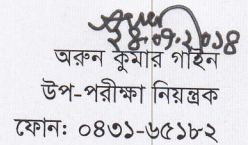 ২৪.০৭.২০১৪
অরুন কুমার গাইন
উপ-পরীক্ষা নিয়ন্ত্রক
ফোন: ০৪৩১-৬৫১৮২